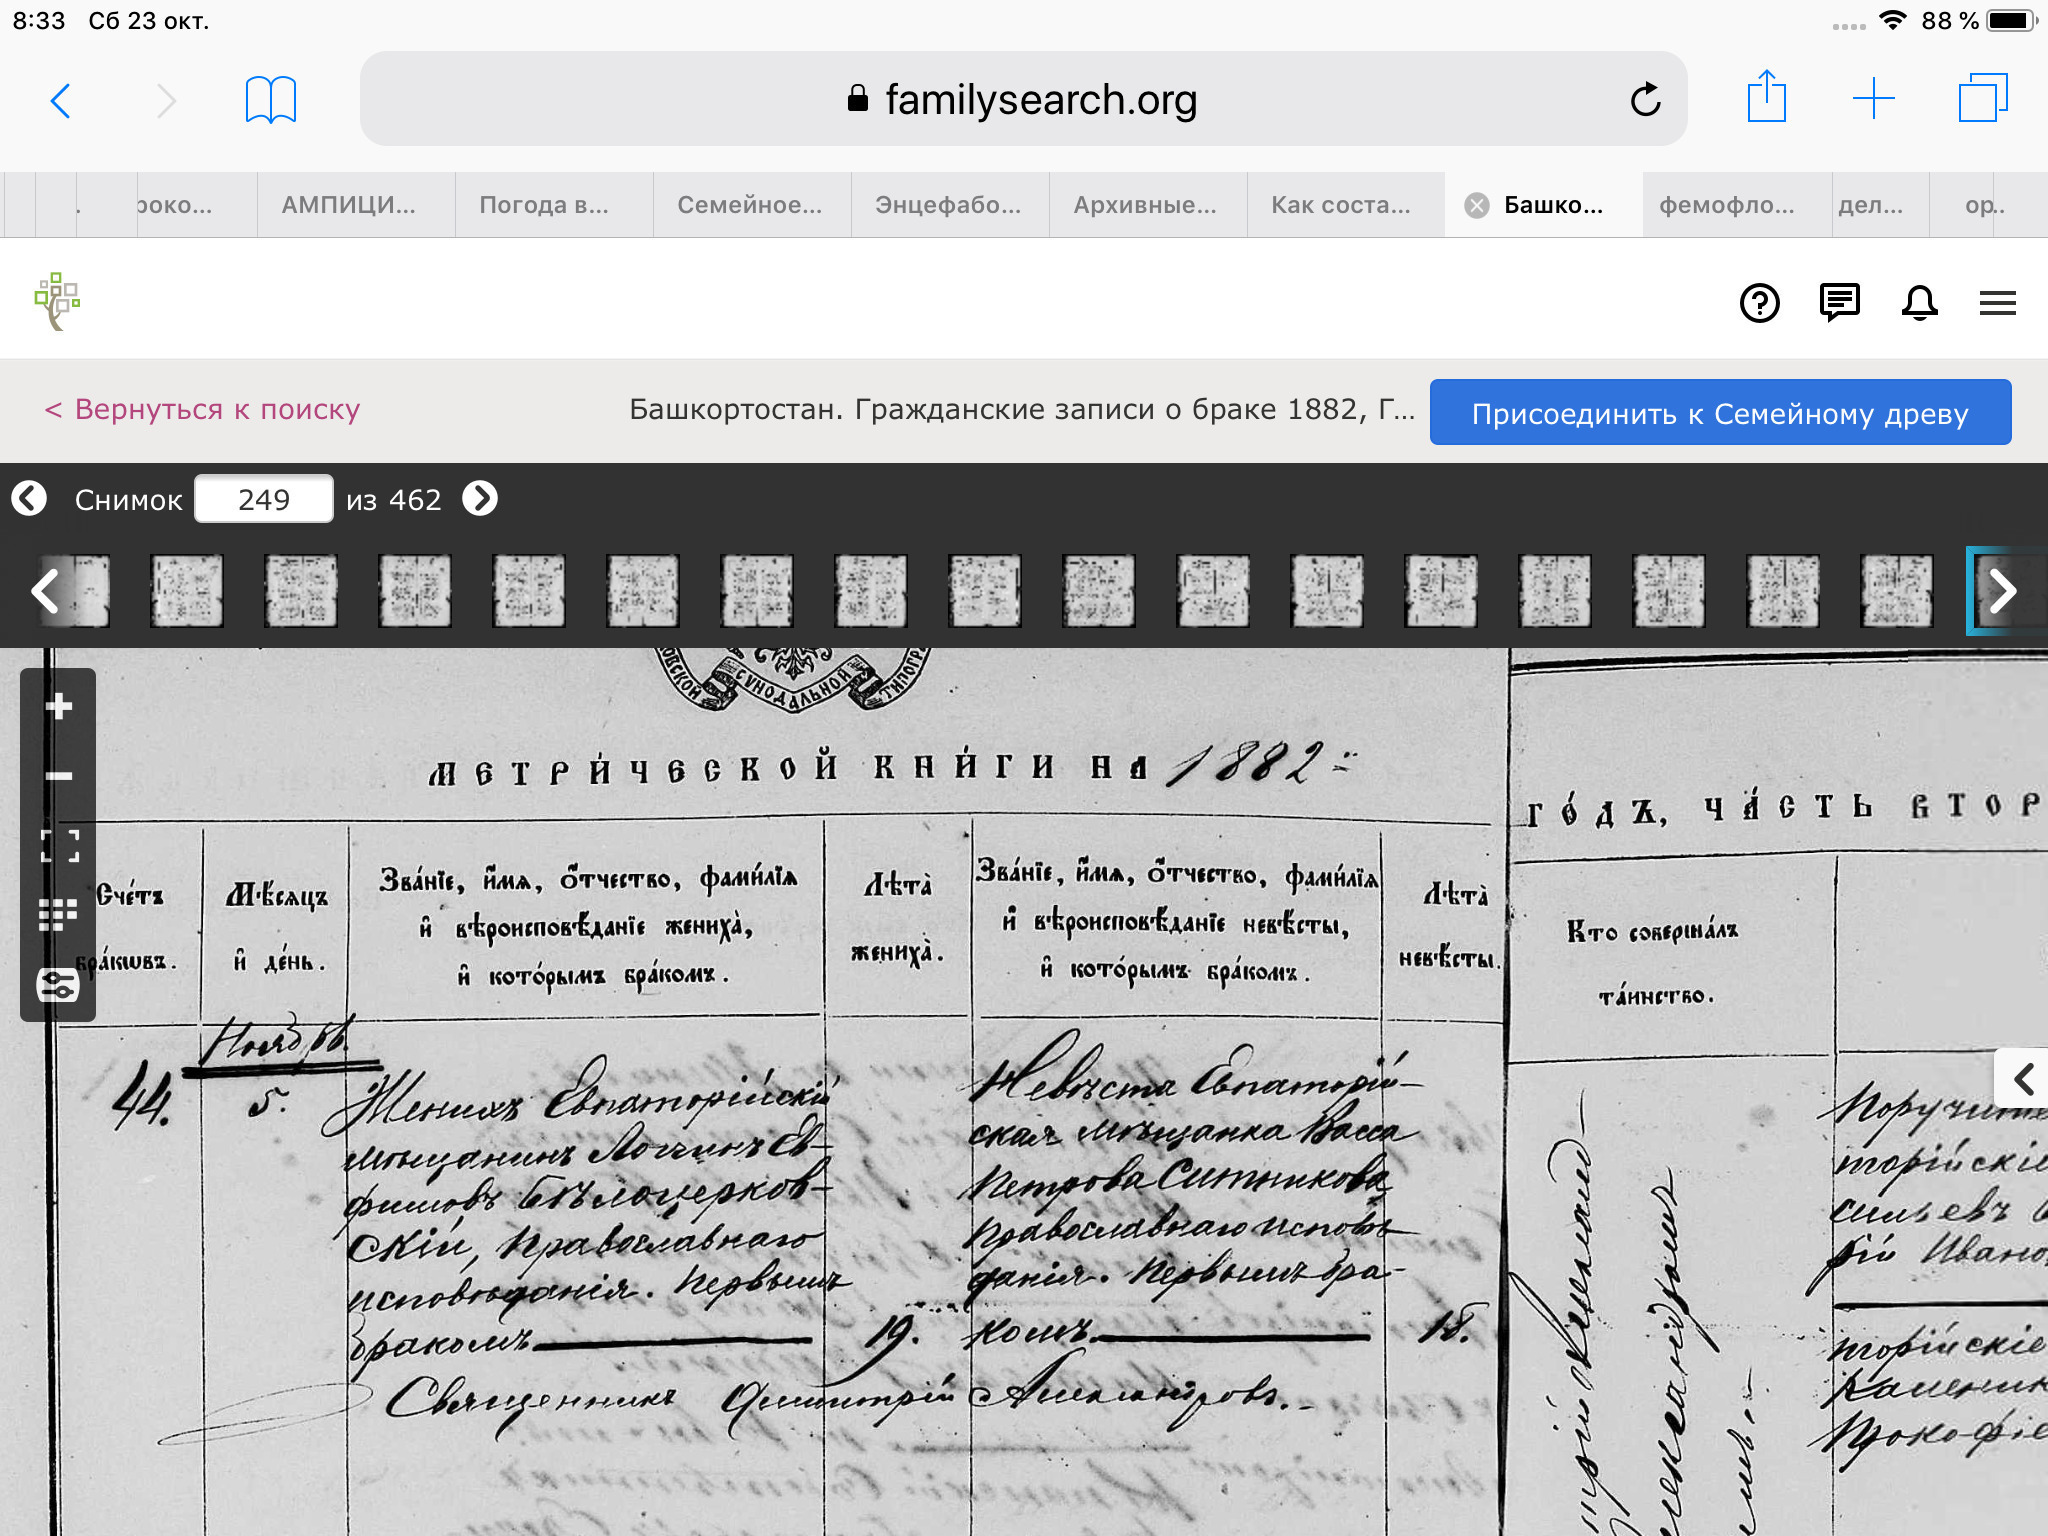 8:33 Сб 23 окт. 88 %
familysearch.org
роко... АМПИЦИ... Погода в... Семейное... Энцефабо... Архивные... Как соста... Башко... фемофло... дел... ор..
< Вернуться к поиску Башкортостан. Гражданские записи о браке 1882, Г... Присоединить к Семейному древу
Снимок 249 из 462
ОВСКОЙ СѴНОДАЛЬНОЙ ТИПОГР
МЕТРИ́ЧЕСКОЙ КНИ́ГИ НА 1882
ГО́ДЪ, ЧА́СТЬ ВТОР
Сче́тъ
бра́кωвъ.
Мѣ́сяцъ
и де́нь.
Зва́нїе, и́мя, о́тчество, фами́лїя
и вѣроисповѣ́данїе жениха̀,
и кото́рымъ бра́комъ.
Лѣта̀
жениха̀.
Зва́нїе, и́мя, о́тчество, фами́лїя
и вѣроисповѣ́данїе невѣ́сты,
и кото́рымъ бра́комъ.
Лѣта̀
невѣ́сты.
Кто соверша́лъ
та́инство.
Ноябрь.
44. 5.
Женихъ Евпаторійскій
мѣщанинъ Логгинъ Ев-
фимовъ Бѣлоцерков-
скій, Православнаго
исповѣданія. Первымъ
бракомъ 19.
Невѣста Евпаторій-
ская мѣщанка Васса
Петрова Ситникова
православнаго исповѣ-
данія. Первымъ бра-
комъ. 18.
Священникъ Димитрій Александровъ.
торійскіе
сильевъ
рій Ивано
торійскіе
Каменик
Прокофіе